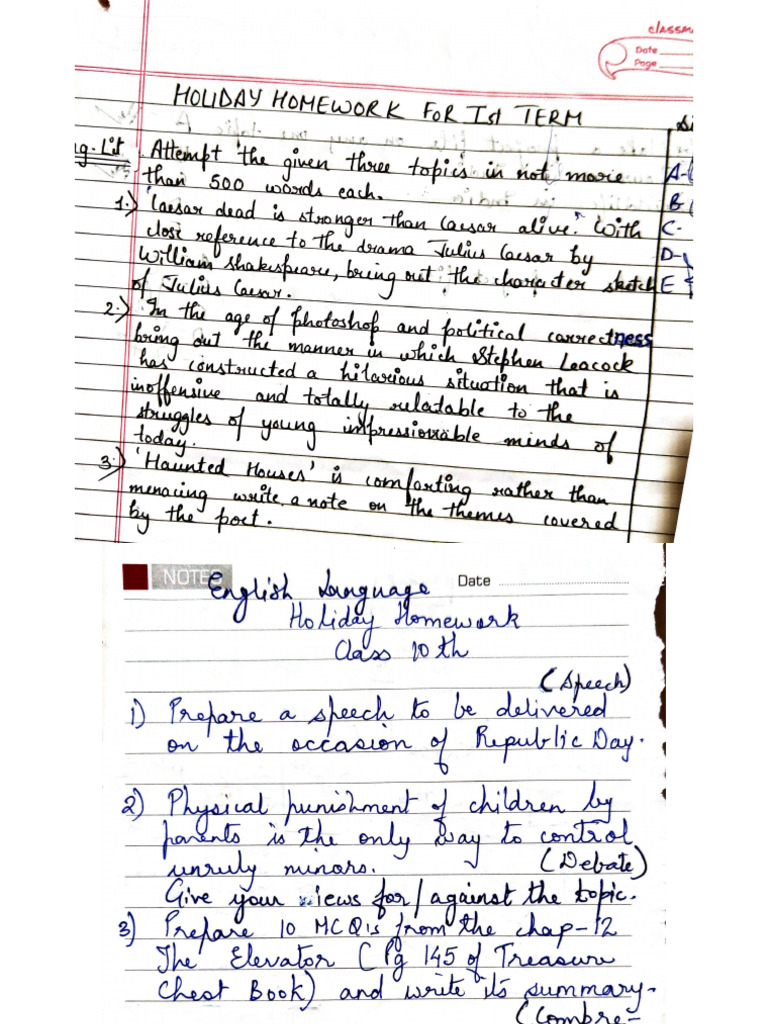 classm
Date
Page
HOLIDAY HOMEWORK FOR Ist TERM
g. Lit Attempt the given three topics in not more
than 500 words each.
1.) 'Caesar dead is stronger than Caesar alive.' With
close reference to the drama Julius Caesar by
William Shakespeare, bring out the character sketch
of Julius Caesar.
2.) In the age of photoshop and political correctness
bring out the manner in which Stephen Leacock
has constructed a hilarious situation that is
inoffensive and totally relatable to the
struggles of young impressionable minds of
today.
3.) 'Haunted Houses' is comforting rather than
menacing write a note on the themes covered
by the poet.
A-
B
C-
D-
E
NOTES
Date
English Language
Holiday Homework
Class 10th
(Speech)
1) Prepare a speech to be delivered
on the occasion of Republic Day.
2) Physical punishment of children by
parents is the only way to control
unruly minors. (Debate)
Give your views for/against the topic.
3) Prepare 10 MCQ's from the chap-12
The Elevator (Pg 145 of Treasure
Chest Book) and write its summary.
(Compre-